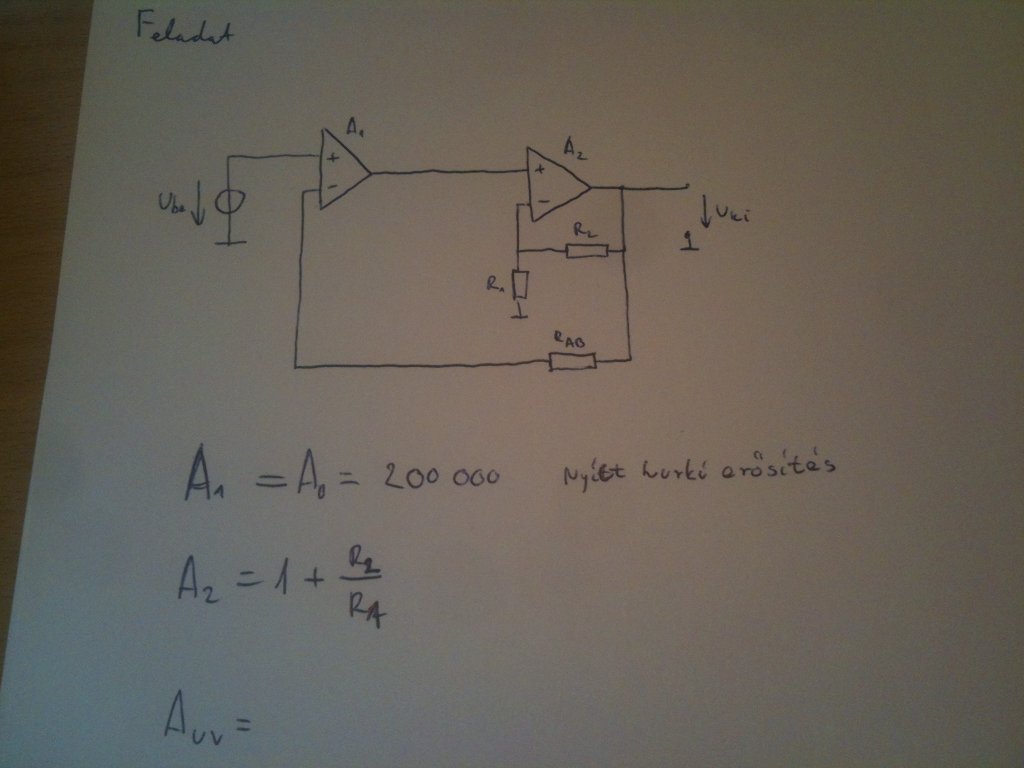 Feladat
A₁
A₂
+
-
+
-
Ube
Uki
R₂
R₁
RAB
A₁ = A₀ = 200 000 Nyílt hurkú erősítés
A₂ = 1 + R₂/R₁
Auv =